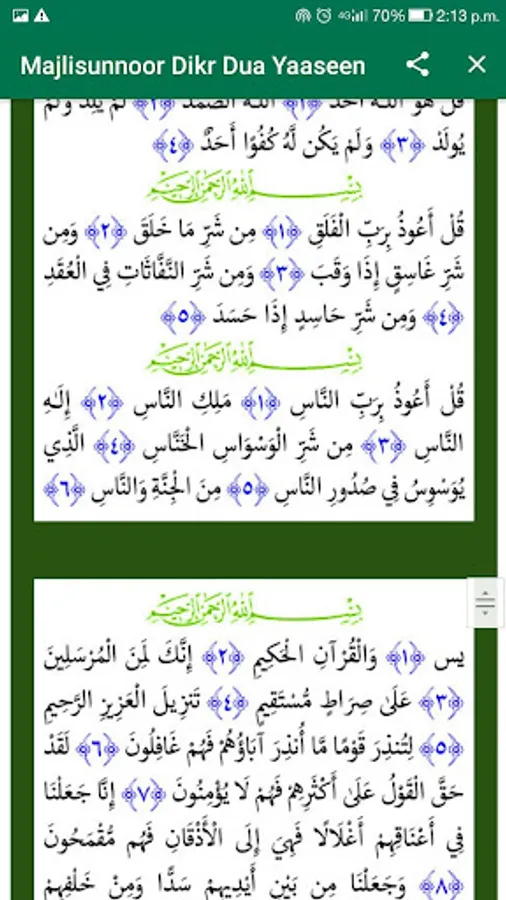 4G 70% 2:13 p.m.
Majlisunnoor Dikr Dua Yaaseen
قُلْ هُوَ اللَّهُ أَحَدٌ ﴿١﴾ اللَّهُ الصَّمَدُ ﴿٢﴾ لَمْ يَلِدْ وَلَمْ
يُولَدْ ﴿٣﴾ وَلَمْ يَكُن لَّهُ كُفُوًا أَحَدٌ ﴿٤﴾
بِسْمِ اللَّهِ الرَّحْمَنِ الرَّحِيمِ
قُلْ أَعُوذُ بِرَبِّ الْفَلَقِ ﴿١﴾ مِن شَرِّ مَا خَلَقَ ﴿٢﴾ وَمِن
شَرِّ غَاسِقٍ إِذَا وَقَبَ ﴿٣﴾ وَمِن شَرِّ النَّفَّاثَاتِ فِي الْعُقَدِ
﴿٤﴾ وَمِن شَرِّ حَاسِدٍ إِذَا حَسَدَ ﴿٥﴾
بِسْمِ اللَّهِ الرَّحْمَنِ الرَّحِيمِ
قُلْ أَعُوذُ بِرَبِّ النَّاسِ ﴿١﴾ مَلِكِ النَّاسِ ﴿٢﴾ إِلَهِ
النَّاسِ ﴿٣﴾ مِن شَرِّ الْوَسْوَاسِ الْخَنَّاسِ ﴿٤﴾ الَّذِي
يُوَسْوِسُ فِي صُدُورِ النَّاسِ ﴿٥﴾ مِنَ الْجِنَّةِ وَالنَّاسِ ﴿٦﴾
بِسْمِ اللَّهِ الرَّحْمَنِ الرَّحِيمِ
يس ﴿١﴾ وَالْقُرْآنِ الْحَكِيمِ ﴿٢﴾ إِنَّكَ لَمِنَ الْمُرْسَلِينَ
﴿٣﴾ عَلَىٰ صِرَاطٍ مُّسْتَقِيمٍ ﴿٤﴾ تَنزِيلَ الْعَزِيزِ الرَّحِيمِ
﴿٥﴾ لِتُنذِرَ قَوْمًا مَّا أُنذِرَ آبَاؤُهُمْ فَهُمْ غَافِلُونَ ﴿٦﴾ لَقَدْ
حَقَّ الْقَوْلُ عَلَىٰ أَكْثَرِهِمْ فَهُمْ لَا يُؤْمِنُونَ ﴿٧﴾ إِنَّا جَعَلْنَا
فِي أَعْنَاقِهِمْ أَغْلَالًا فَهِيَ إِلَى الْأَذْقَانِ فَهُم مُّقْمَحُونَ
﴿٨﴾ وَجَعَلْنَا مِن بَيْنِ أَيْدِيهِمْ سَدًّا وَمِنْ خَلْفِهِمْ